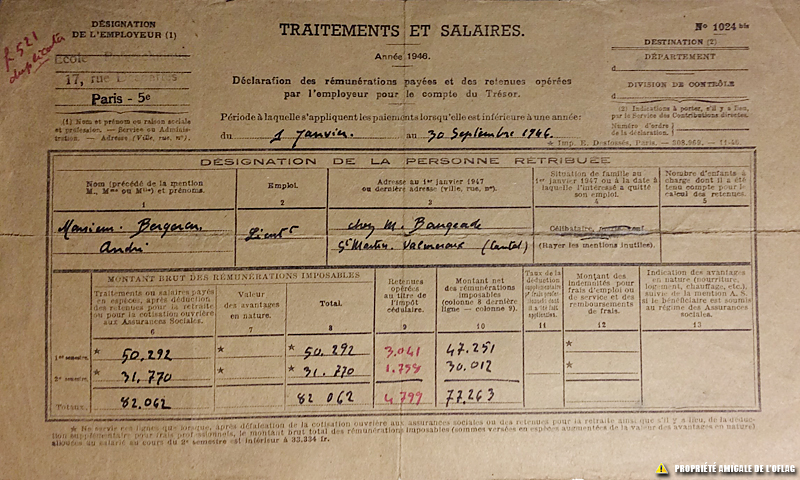 DÉSIGNATION
DE L'EMPLOYEUR (1)
École
17, rue Descartes
Paris - 5e
(1) Nom et prénom ou raison sociale
et profession. — Service ou Adminis-
tration. — Adresse (Ville, rue, n°).
TRAITEMENTS ET SALAIRES.
Année 1946.
Déclaration des rémunérations payées et des retenues opérées
par l'employeur pour le compte du Trésor.
Période à laquelle s'appliquent les paiements lorsqu'elle est inférieure à une année:
du 1 Janvier au 30 Septembre 1946.
N° 1024 bis
DESTINATION (2)
DÉPARTEMENT
d
DIVISION DE CONTRÔLE
d
(2) Indications à porter, s'il y a lieu,
par le Service des Contributions directes.
Numéro d'ordre
de la déclaration.
★ Imp. E. Desfossés, Paris. — 308.969. — 11-46.
DÉSIGNATION DE LA PERSONNE RÉTRIBUÉE
Nom (précédé de la mention
M., Mme ou Mlle) et prénoms.
1
Emploi.
2
Adresse au 1er janvier 1947
ou dernière adresse (ville, rue, n°).
3
Situation de famille au
1er janvier 1947 ou à la date à
laquelle l'intéressé a quitté
son emploi.
4
Nombre d'enfants à
charge dont il a été
tenu compte pour le
calcul des retenues.
5
Monsieur
André
Lieut t
chez M.
St Martin Valmeroux (Cantal)
Célibataire,
(Rayer les mentions inutiles).
MONTANT BRUT DES RÉMUNÉRATIONS IMPOSABLES
Traitements ou salaires payés
en espèces, après déduction
des retenues pour la retraite
ou pour la cotisation ouvrière
aux Assurances Sociales.
6
Valeur
des avantages
en nature.
7
Total.
8
Retenues
opérées
au titre de
l'impôt
cédulaire.
9
Montant net
des rémunérations
imposables
(colonne 8 dernière
ligne — colonne 9).
10
Taux de la
déduction
supplémentaire
pr frais profes-
sionnels dont il
a été fait
application.
11
Montant des
indemnités pour
frais d'emploi ou
de service et des
remboursements
de frais.
12
Indication des avantages
en nature (nourriture,
logement, chauffage, etc.),
suivie de la mention A. S.
si le bénéficiaire est soumis
au régime des Assurances
sociales.
13
1er semestre. ★ 50.292 ★ ★ 50.292 3.041 47.251 ★
2e semestre. ★ 31.770 ★ ★ 31.770 1.758 30.012 ★
Totaux. 82.062 82 062 4.799 77.263
★ Ne servir ces lignes que lorsque, après défalcation de la cotisation ouvrière aux assurances sociales ou des retenues pour la retraite ainsi que, s'il y a lieu, de la déduc-
tion supplémentaire pour frais professionnels, le montant brut total des rémunérations imposables (sommes versées en espèces augmentées de la valeur des avantages en nature)
allouées au salarié au cours du 2e semestre est inférieur à 33.334 fr.
PROPRIÉTÉ AMICALE DE L'OFLAG